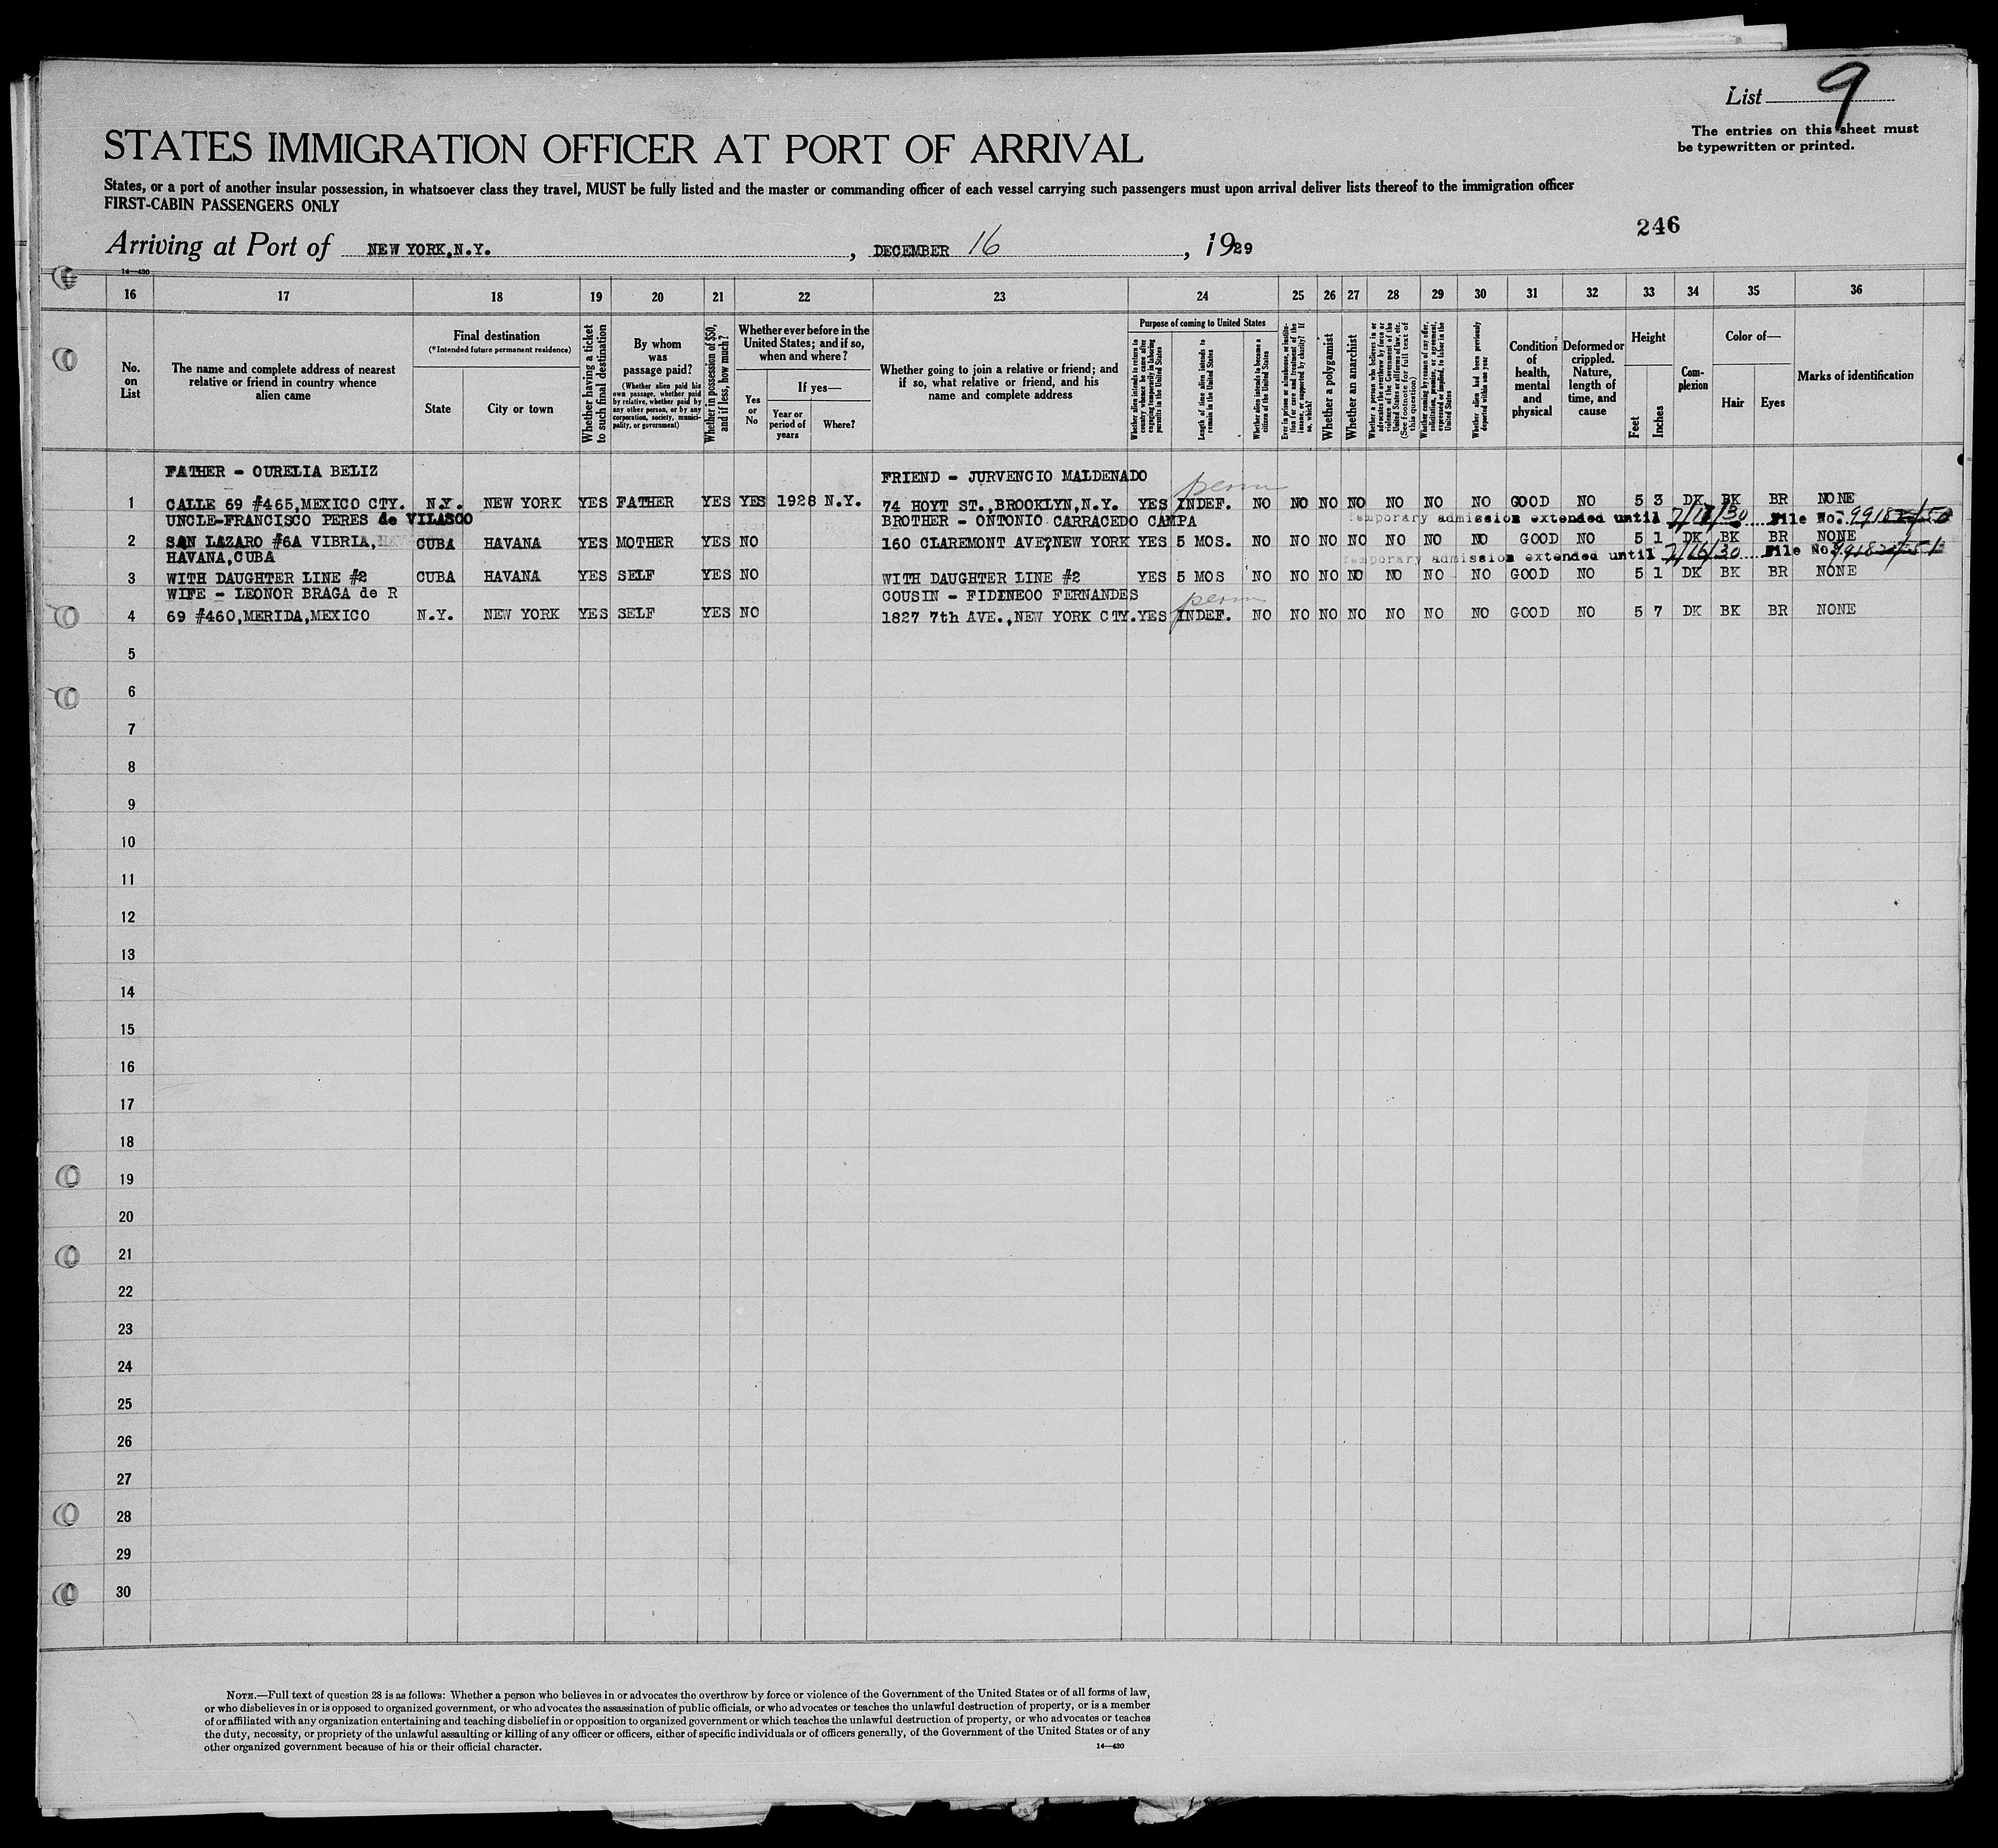 List 9
The entries on this sheet must
be typewritten or printed.
STATES IMMIGRATION OFFICER AT PORT OF ARRIVAL
States, or a port of another insular possession, in whatsoever class they travel, MUST be fully listed and the master or commanding officer of each vessel carrying such passengers must upon arrival deliver lists thereof to the immigration officer
FIRST-CABIN PASSENGERS ONLY
246
Arriving at Port of NEW YORK, N.Y. , DECEMBER 16 , 1929
14—430
16 17 18 19 20 21 22 23 24 25 26 27 28 29 30 31 32 33 34 35 36
No. on List
The name and complete address of nearest relative or friend in country whence alien came
Final destination
(*Intended future permanent residence)
State
City or town
Whether having a ticket to such final destination
By whom was passage paid?
(Whether alien paid his own passage, whether paid by relative, whether paid by any other person, or by any corporation, society, municipality, or government)
Whether in possession of $50, and if less, how much?
Whether ever before in the United States; and if so, when and where?
Yes or No
If yes—
Year or period of years
Where?
Whether going to join a relative or friend; and if so, what relative or friend, and his name and complete address
Purpose of coming to United States
Whether alien intends to return to country whence he came after engaging temporarily in laboring pursuits in the United States
Length of time alien intends to remain in the United States
Whether alien intends to become a citizen of the United States
Ever in prison or almshouse, or institution for care and treatment of the insane, or supported by charity? If so, which?
Whether a polygamist
Whether an anarchist
Whether a person who believes in or advocates the overthrow by force or violence of the Government of the United States or all forms of law, etc. (See footnote for full text of this question)
Whether coming by reason of any offer, solicitation, promise, or agreement, expressed or implied, to labor in the United States
Whether alien had been previously deported within one year
Condition of health, mental and physical
Deformed or crippled. Nature, length of time, and cause
Height
Feet
Inches
Complexion
Color of—
Hair
Eyes
Marks of identification
FATHER - OURELIA BELIZ FRIEND - JURVENCIO MALDENADO perm
1 CALLE 69 #465, MEXICO CTY. N.Y. NEW YORK YES FATHER YES YES 1928 N.Y. 74 HOYT ST., BROOKLYN, N.Y. YES INDEF. NO NO NO NO NO NO NO GOOD NO 5 3 DK BK BR NONE
UNCLE-FRANCISCO PERES de VILASCO BROTHER - ONTONIO CARRACEDO CAMPA Temporary admission extended until 7/16/30 File No. 99182/50
2 SAN LAZARO #6A VIBRIA, CUBA HAVANA YES MOTHER YES NO 160 CLAREMONT AVE, NEW YORK YES 5 MOS. NO NO NO NO NO NO NO GOOD NO 5 1 DK BK BR NONE
HAVANA, CUBA Temporary admission extended until 7/16/30 File No. 99182/51
3 WITH DAUGHTER LINE #2 CUBA HAVANA YES SELF YES NO WITH DAUGHTER LINE #2 YES 5 MOS NO NO NO NO NO NO NO GOOD NO 5 1 DK BK BR NONE
WIFE - LEONOR BRAGA de R COUSIN - FIDINEOO FERNANDES perm
4 69 #460, MERIDA, MEXICO N.Y. NEW YORK YES SELF YES NO 1827 7th AVE., NEW YORK CTY. YES INDEF. NO NO NO NO NO NO NO GOOD NO 5 7 DK BK BR NONE
5
6
7
8
9
10
11
12
13
14
15
16
17
18
19
20
21
22
23
24
25
26
27
28
29
30
NOTE.—Full text of question 28 is as follows: Whether a person who believes in or advocates the overthrow by force or violence of the Government of the United States or of all forms of law,
or who disbelieves in or is opposed to organized government, or who advocates the assassination of public officials, or who advocates or teaches the unlawful destruction of property, or is a member
of or affiliated with any organization entertaining and teaching disbelief in or opposition to organized government or which teaches the unlawful destruction of property, or who advocates or teaches
the duty, necessity, or propriety of the unlawful assaulting or killing of any officer or officers, either of specific individuals or of officers generally, of the Government of the United States or of any
other organized government because of his or their official character.
14—430